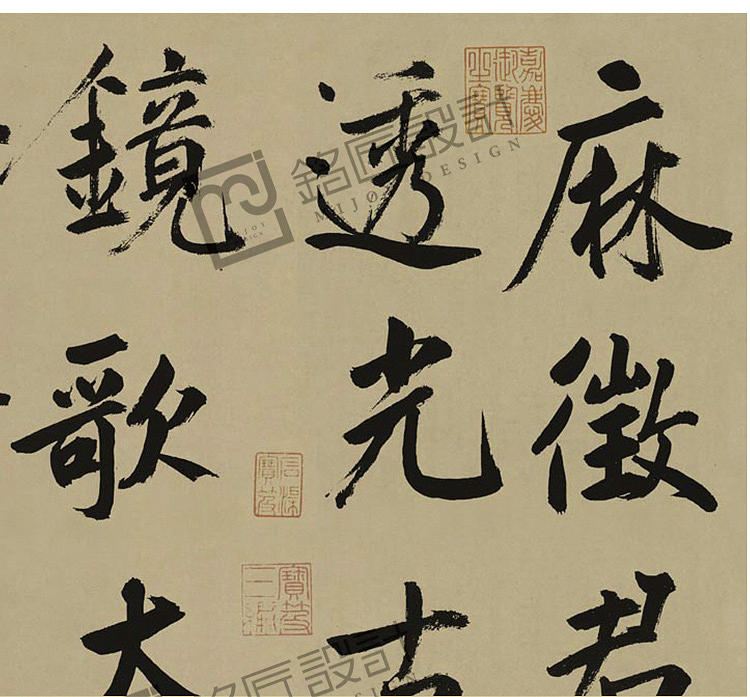 麻徵君
透光古
鏡歌
嘉慶御覽之寶
石渠寶笈
寶笈三編
銘匠設計
MIJOY DESIGN
銘匠設計